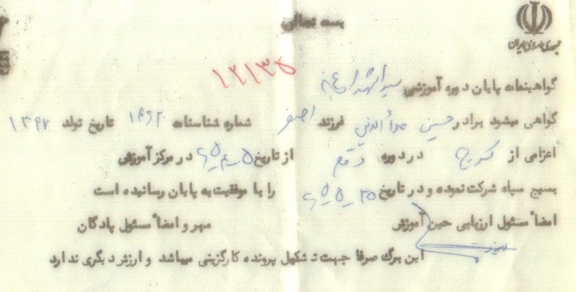 بسمه تعالی
جمهوری اسلامی ایران
۱۲۱۳۵
گواهینامه پایان دوره آموزشی سیدالشهداء
گواهی میشود برادر حسین فرزند اصغر شماره شناسنامه ۱۸۶۲ تاریخ تولد ۱۳۴۷
اعزامی از کرج در دوره از تاریخ در مرکز آموزش
بسیج سپاه شرکت نموده و در تاریخ را با موفقیت به پایان رسانیده است
امضاٴ مسئول ارزیابی حین آموزش مهر و امضاٴ مسئول پادگان
این برگ صرفا جهت تشکیل پرونده کارگزینی میباشد و ارزش دیگری ندارد